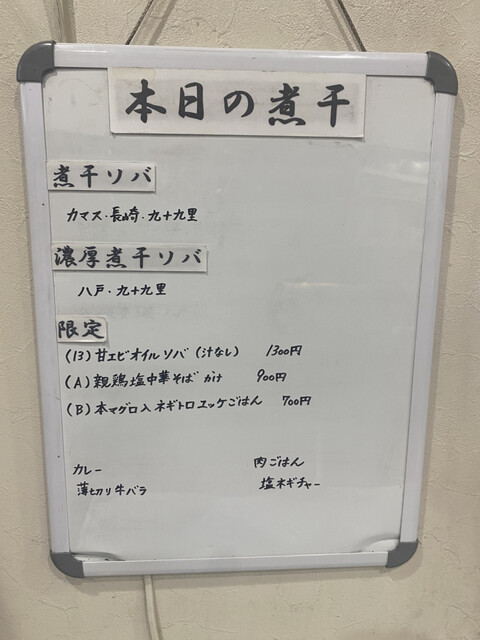 本日の煮干
煮干ソバ
カマス・長崎・九十九里
濃厚煮干ソバ
八戸・九十九里
限定
(13) 甘エビオイルソバ (汁なし) 1300円
(A) 親鶏塩中華そば かけ 900円
(B) 本マグロ入ネギトロユッケごはん 700円
カレー 肉ごはん
薄切り牛バラ 塩ネギチャー